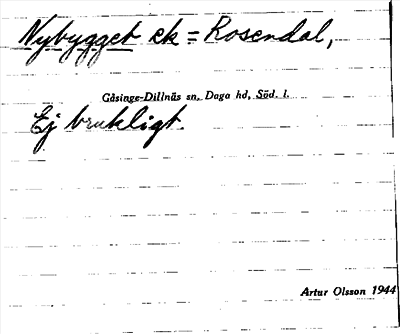 Nybygget ek = Rosendal,
Gåsinge-Dillnäs sn, Daga hd, Söd. l.
Ej brukligt.
Artur Olsson 1944